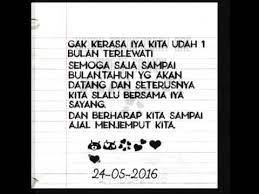 GAK KERASA IYA KITA UDAH 1
BULAN TERLEWATI
SEMOGA SAJA SAMPAI
BULAN,TAHUN YG AKAN
DATANG DAN SETERUSNYA
KITA SLALU BERSAMA IYA
SAYANG.
DAN BERHARAP KITA SAMPAI
AJAL MENJEMPUT KITA.
24-05-2016